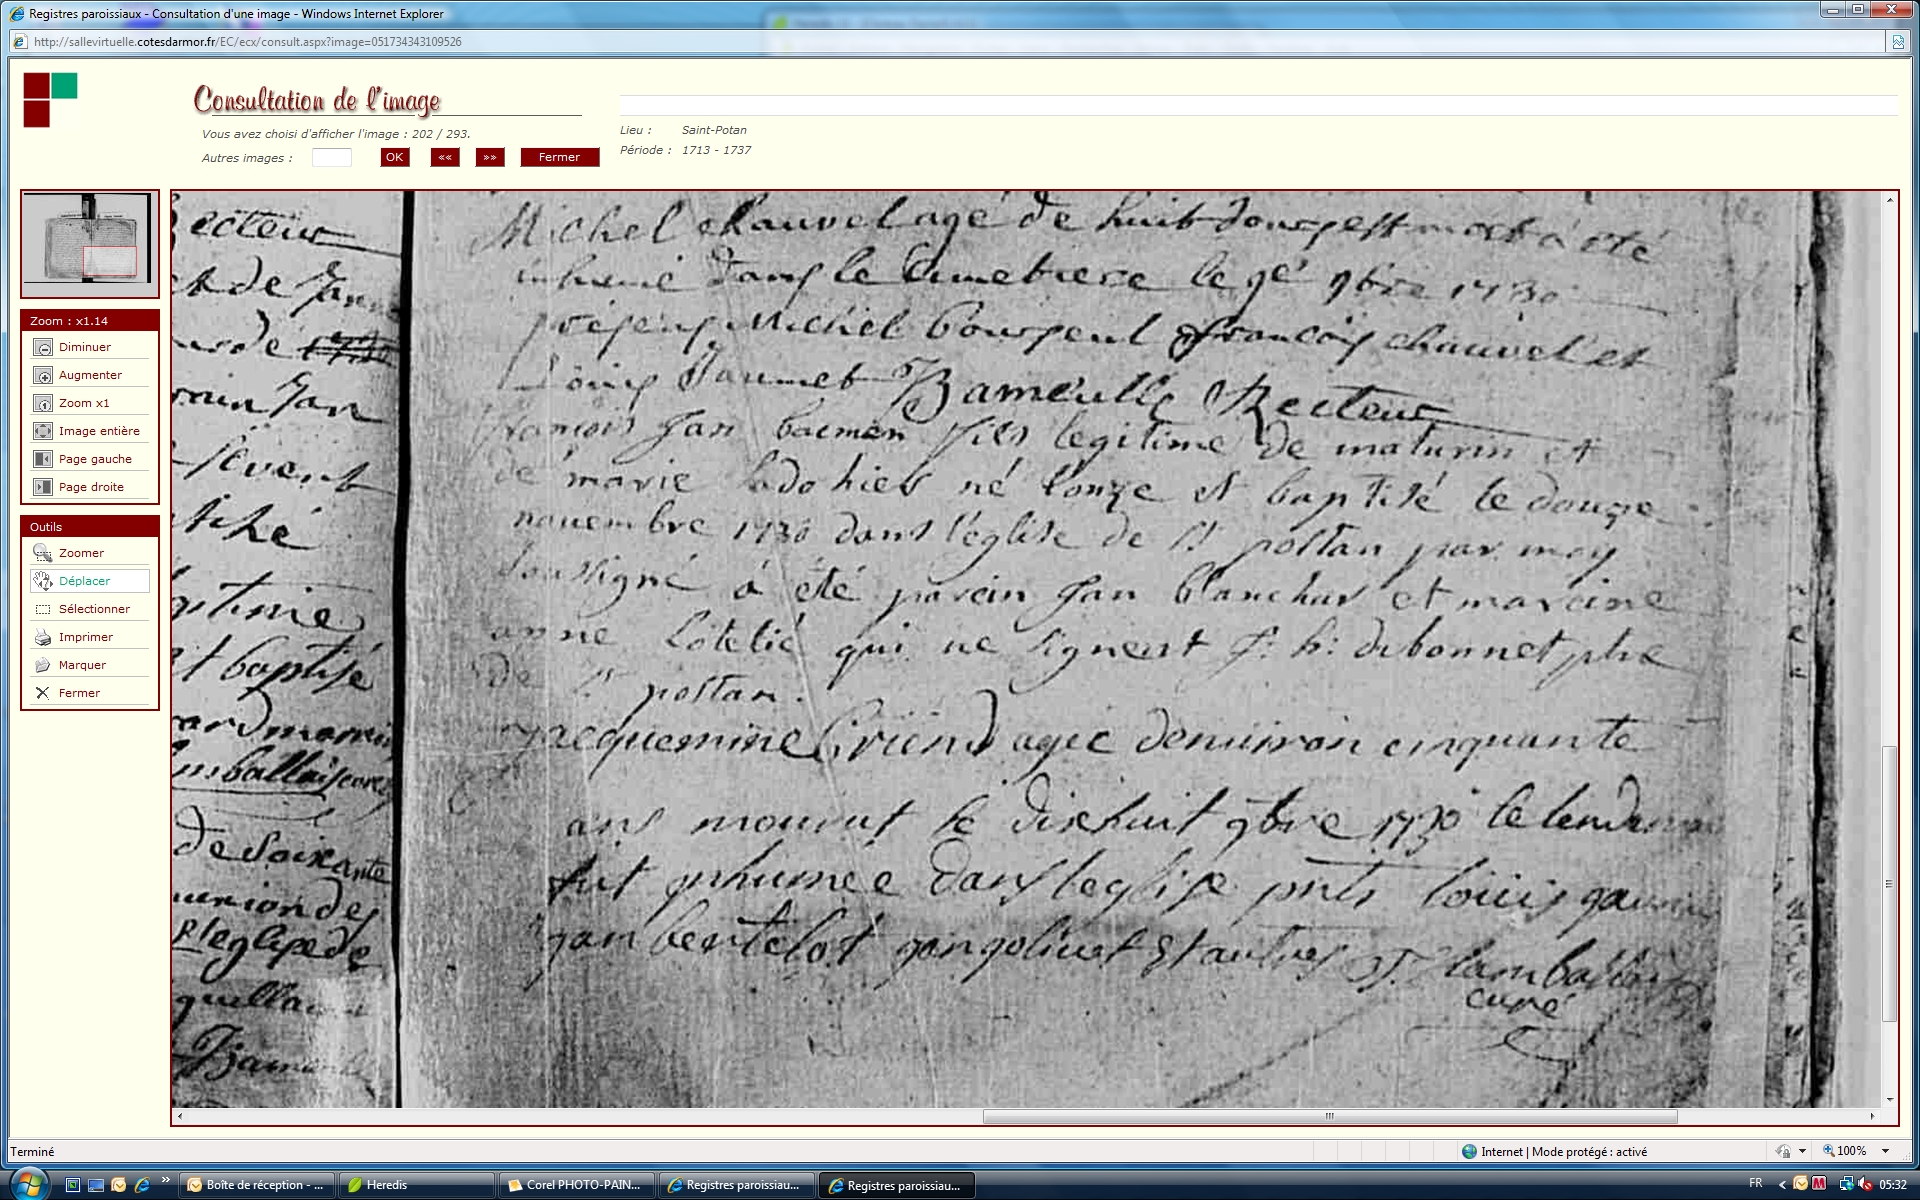 Registres paroissiaux - Consultation d'une image - Windows Internet Explorer
http://sallevirtuelle.cotesdarmor.fr/EC/ecx/consult.aspx?image=051734343109526
Consultation de l'image
Vous avez choisi d'afficher l'image : 202 / 293.
Autres images :
OK
««
»»
Fermer
Lieu : Saint-Potan
Période : 1713 - 1737
Zoom : x1.14
Diminuer
Augmenter
Zoom x1
Image entière
Page gauche
Page droite
Outils
Zoomer
Déplacer
Sélectionner
Imprimer
Marquer
Fermer
Recteur
et de
de
Jan
tisé
gitime
et baptisé
lamballais curé
de soixante
l'eglise de
Michel chauvel agé de huit jours est mort a été
inhumé dans le Cimetiere le 9e 9bre 1730
présens Michel bourseul françois chauvel et
Louis Bameulle Recteur
francois Jan baemen fils legitime de maturin et
de marie né l'onze et baptisé le douze
nouembre 1730 dans l'église de St postan par moy
soussigné a été parain Jan blanchar et maraine
anne qui ne signent f. h. dubonnet ptre
de St postan.
jacquemine Briend agee denuiron cinquante
ans mourut le dixhuit 9bre 1730 le lendemain
fut ynhumée dans leglise pnts louis
jan bertelot jan goliuet Et autres J. lamballais
curé
Terminé
Internet | Mode protégé : activé
100%
Boîte de réception - ...
Heredis
Corel PHOTO-PAIN...
Registres paroissiau...
Registres paroissiau...
FR
05:32